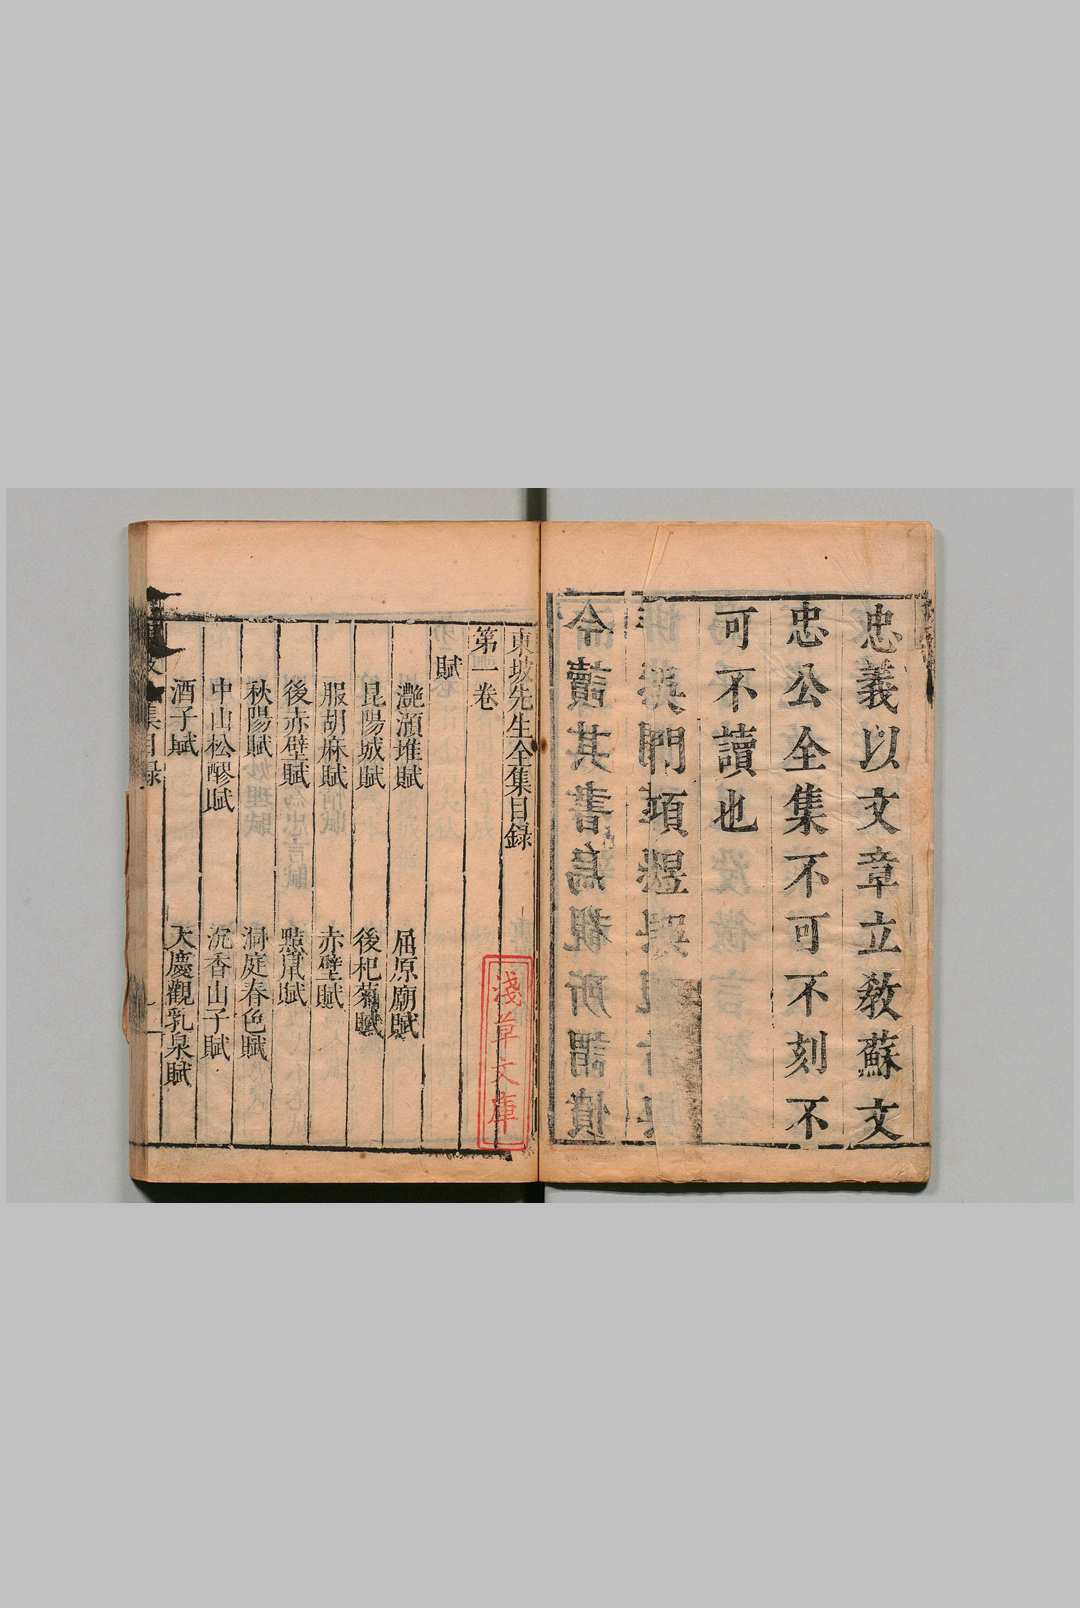 忠義以文章立教蘇文
忠公全集不可不刻不
可不讀也
東坡先生全集目録
第一卷
賦
灔澦堆賦　屈原廟賦
昆陽城賦　後杞菊賦
服胡麻賦　赤壁賦
後赤壁賦　黠鼠賦
秋陽賦　洞庭春色賦
中山松醪賦　沉香山子賦
酒子賦　天慶觀乳泉賦
集目録
淺草文庫